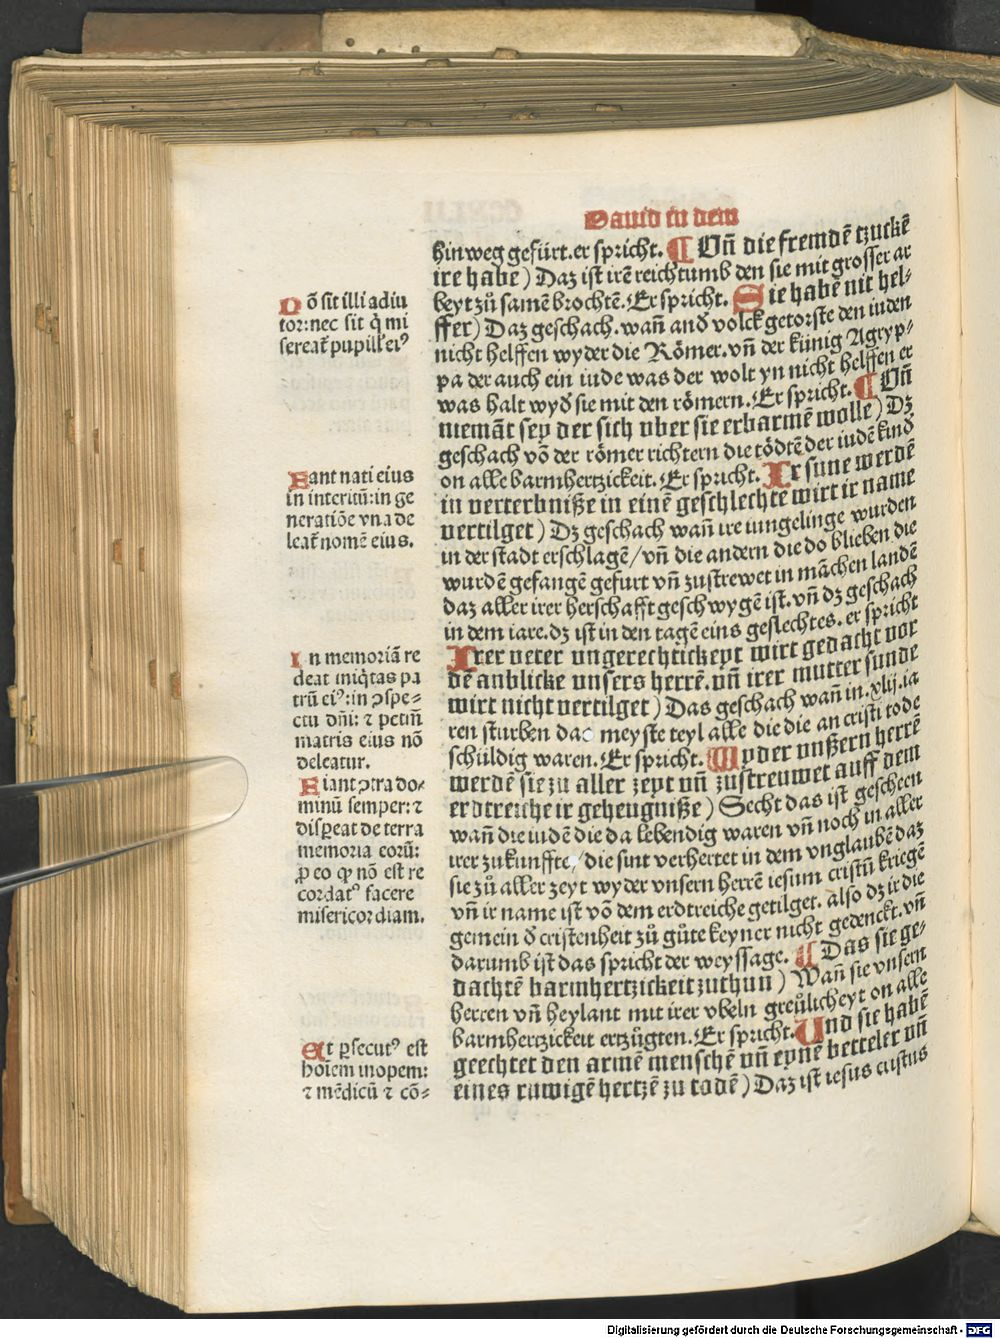 Dauid in dem
hinweg gefürt. er spricht. ¶ Uñ die fremdē tzuckē
ire habe) Daz ist irē reichtumb den sie mit grosser ar
beyt zů samē brochtē. Er spricht. Sie habē nit hel⸗
ffer) Daz geschach. wañ and̄ volck getorste den iuden
nicht helffen wyder die Römer. vñ der künig Agryp⸗
pa der auch ein iude was der wolt yn nicht helffen er
was halt wyd̄ sie mit den römern. Er spricht. ¶ Uñ
niemāt sey der sich vber sie erbarmē wolle) Dz
geschach vō der römer richtern die tödtē der iudē kind
on alle barmhertzickeit. Er spricht. Ir sune werdē
in verterbniße in einē geschlechte wirt ir name
vertilget) Dz geschach wañ ire iungelinge wurden
in der stadt erschlagē/ vñ die andern die do blieben die
wurdē gefangē gefurt vñ zustrewet in māchen landē
daz aller irer herschafft geschwygē ist. vñ dz geschach
in dem iare. dz ist in den tagē eins geslechtes. er spricht
Irer veter vngerechtickeyt wirt gedacht vor
dē anblicke vnsers herrē. vñ irer mutter sunde
wirt nicht vertilget) Das geschach wañ in. xlij. ia
ren sturben das meyste teyl alle die die an cristi tode
schüldig waren. Er spricht. Wyder vnßern herrē
werdē sie zu aller zeyt vñ zustreuwet auff dem
erdtreiche ir geheugniße) Secht das ist gescheen
wañ die iudē die da lebendig waren vñ noch in aller
irer zukunffte/ die sint verhertet in dem vnglaubē daz
sie zů aller zeyt wyder vnsern herrē iesum cristū kriegē
vñ ir name ist vō dem erdtreiche getilget. also dz ir die
gemein d̄ cristenheit zů gůte keyner nicht gedenckt. vñ
darumb ist das spricht der weyssage. ¶ Das sie ge⸗
dachtē barmhertzickeit zuthun) Wañ sie vnsern
herren vñ heylant mit irer vbeln greülicheyt on alle
barmhertzickeit ertzügten. Er spricht. Und sie habē
geechtet den armē menschē vñ eynē betteler vñ
eines ruwigē hertzē zu todē) Daz ist iesus cristus
Nō sit illi adiu
tor: nec sit q̇ mi
sereat̄ pupill' ei⁹
Fiant nati eius
in interitū: in ge
neratiōe vna de
leat̄ nomē eius.
In memoriā re
deat iniq̇tas pa
trū ei⁹: in ↄspe⸗
ctu dñi: ⁊ petm̄
matris eius nō
deleatur.
Fiant ↄtra do⸗
minū semper: ⁊
disꝑeat de terra
memoria eorū:
ꝓ eo ꝙ nō est re
cordat⁹ facere
misericordiam.
Et ꝑsecut⁹ est
hoīem inopem:
⁊ mēdicū ⁊ cō⸗
Digitalisierung gefördert durch die Deutsche Forschungsgemeinschaft - DFG